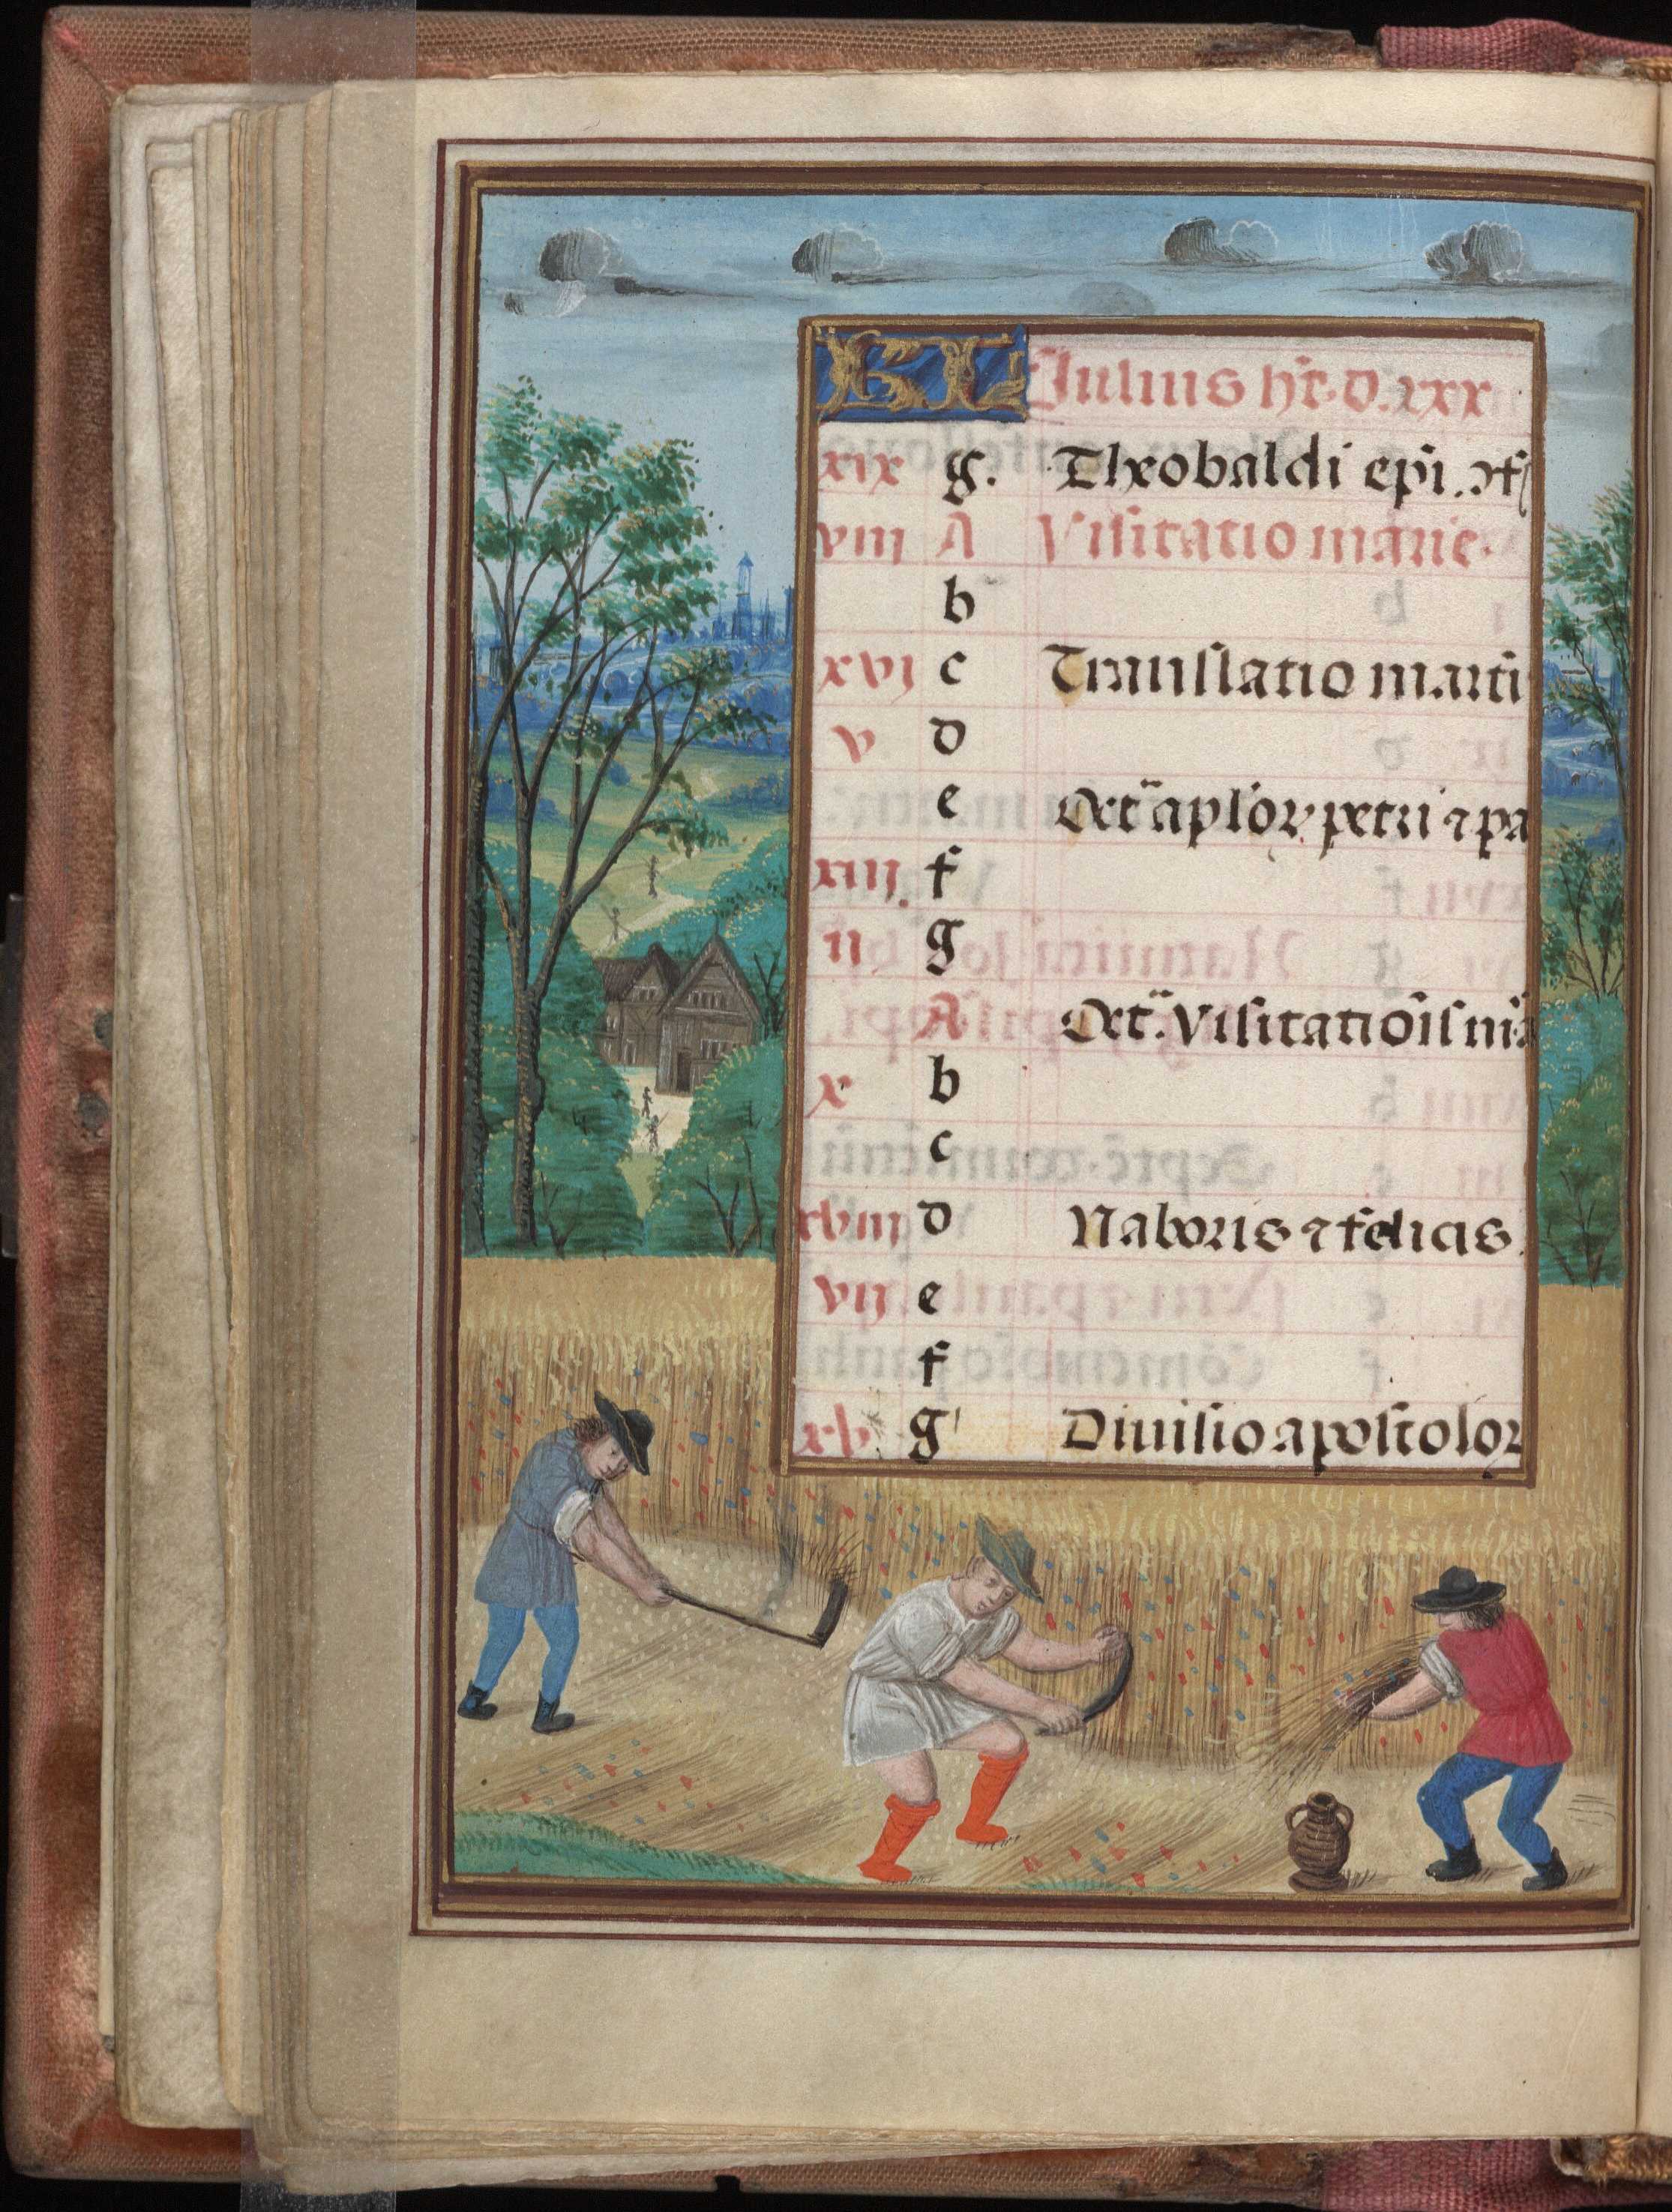 KL Julius hꝛ̄. d. xxx
xix g. Theobaldi ep̄i. ꝯf
viii A Visitatio marie.
b
xvj c Translatio marti
v d
e Oct̄ aplõꝝ petri ⁊ pa
xiij. f
ii g
A Oct̄. Visitatiōis m̄a
x b
c
xviij d Naboris ⁊ felicis.
vij e
f
xv g Diuisio apostoloꝛ